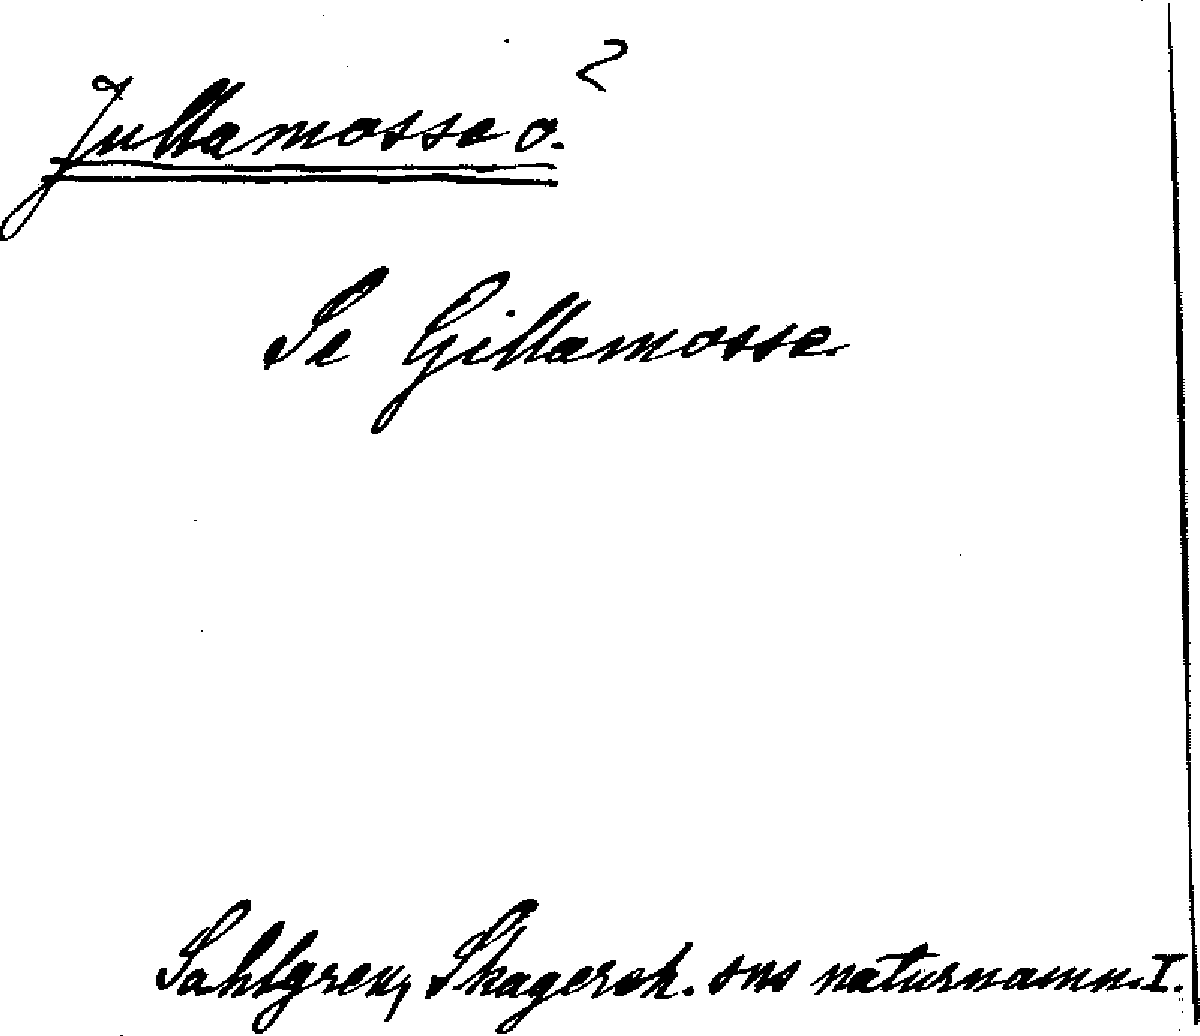 Jullamosse o. 2
Se Gillamosse
Sahlgren, Skagersh. sns naturnamn. I.